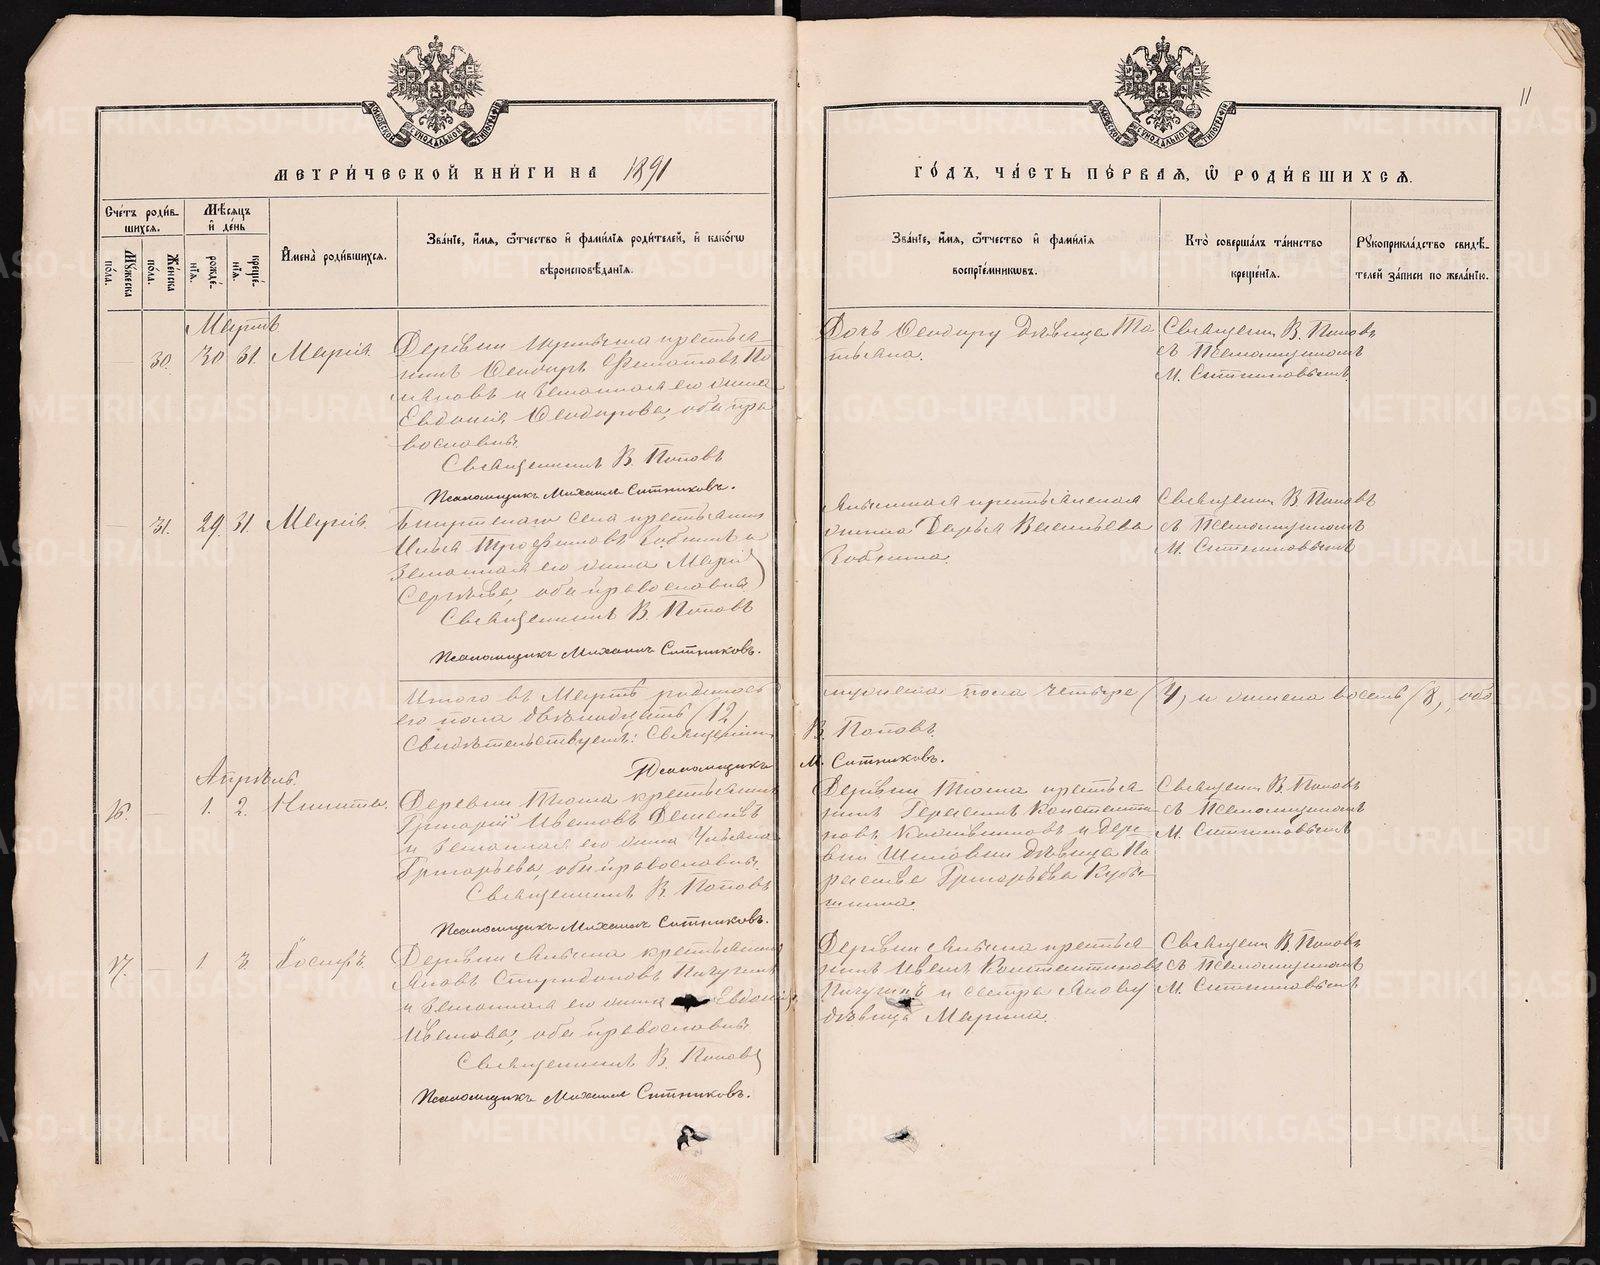 11
МЕТРИ́ЧЕСКОЙ КНИ́ГИ НА 1891
ГО́ДЪ, ЧА́СТЬ ПЕ́РВАЯ, Ѿ РОДИ́ВШИХСЯ.
Сче́тъ роди́в-
шихся.
Му́жеска по́ла.
Же́нска по́ла.
Мѣ́сяцъ
и̂ де́нь
рожде́-
нїя.
креще́-
нїя.
И̂мена̀ роди́вшихся.
Зва́нїе, и̂́мя, ѻ̂́тчество и̂ фами́лїя роди́телей, и̂ како́гѡ
вѣроисповѣ́данїя.
Зва́нїе, и̂́мя, ѻ̂́тчество и̂ фами́лїя
воспрїе́мникѡвъ.
Кто̀ соверша́лъ та́инство
креще́нїя.
Рукоприкла́дство свидѣ́-
телей за́писи по жела́нїю.
Мартъ
30. 30 31. Марія.
Деревни крестья-
нинъ Ѳеодоръ Филатовъ По-
и законная его жена
Евдокія Ѳеодорова, оба пра
вославные.
Священникъ В. Поповъ
Псаломщикъ Михаилъ Ситниковъ.
Дочь Ѳеодору дѣвица Та
тьяна.
Священ. В. Поповъ
съ Псаломщикомъ
М. Ситниковымъ
31. 29. 31. Марія.
села крестьянинъ
Илья Трофимовъ и
законная его жена Марія
Сергѣева, оба православные
Священникъ В. Поповъ
Псаломщикъ Михаилъ Ситниковъ.
крестьянская
жена Дарья Васильева
Священ. В. Поповъ
съ Псаломщикомъ
М. Ситниковымъ
Итого въ Мартѣ родилось мужеска пола четыре (4) и женска восемь (8), обо
его пола двѣнадцать (12)
Свидѣтельствуемъ: Священникъ В. Поповъ.
Псаломщикъ М. Ситниковъ.
Апрѣль.
16. 1. 2. Никита.
Деревни Тюша крестьянинъ
Григорій Ивановъ
и законная его жена Ульяна
Григорьева, оба православные.
Священникъ В. Поповъ
Псаломщикъ Михаилъ Ситниковъ.
Деревни Тюша крестья
нинъ Герасимъ Константи
новъ и дерев-
ни дѣвица Па
раскева Григорьева
Священ. В. Поповъ
съ Псаломщикомъ
М. Ситниковымъ
17. 1. 3. Іосифъ.
Деревни крестьянинъ
Яковъ Спиридоновъ Пичугинъ
и законная его жена Евдокія
Иванова, оба православные.
Священникъ В. Поповъ
Псаломщикъ Михаилъ Ситниковъ.
Деревни крестья
нинъ Иванъ Константиновъ
Пичугинъ и сестра Якову
дѣвица Марина.
Священ. В. Поповъ
съ Псаломщикомъ
М. Ситниковымъ
METRIKI.GASO-URAL.RU